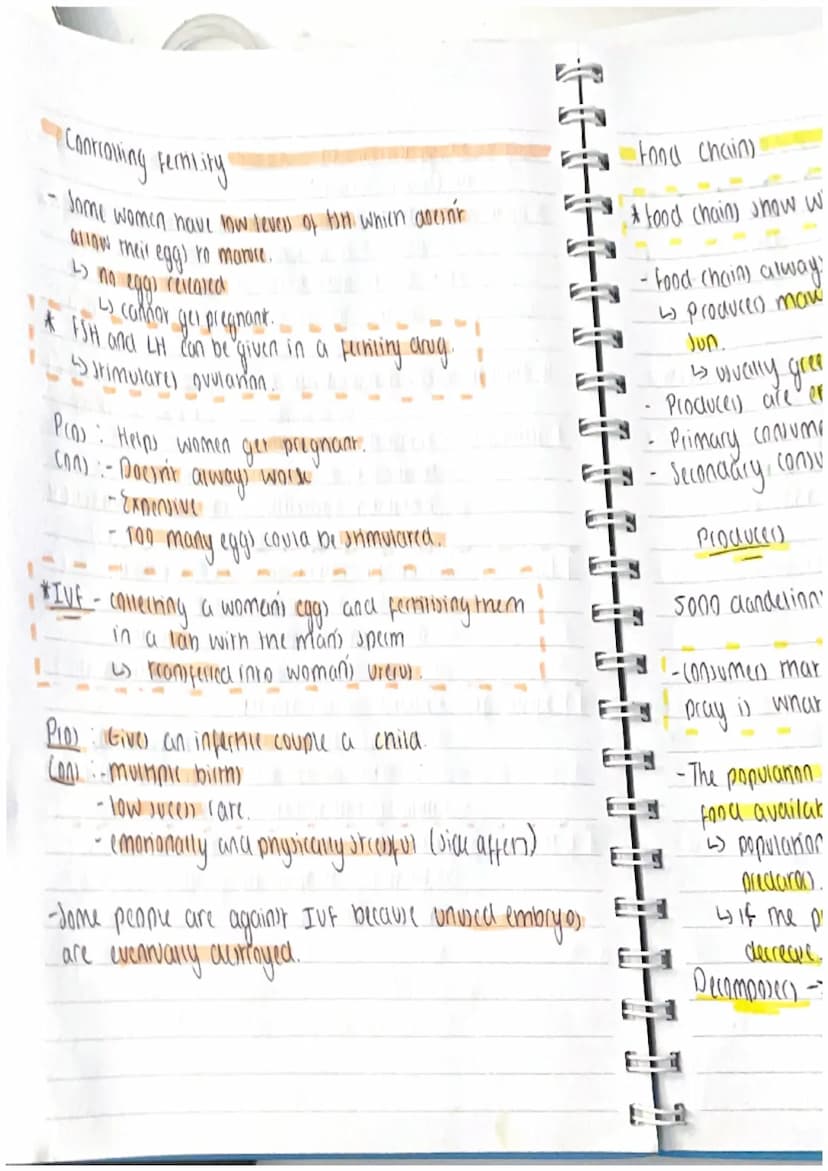 Controlling fertility
- Some women have low levels of FSH which doesn't
allow their eggs to mature.
↳ no eggs released
↳ cannot get pregnant.
* FSH and LH can be given in a fertility drug.
↳ stimulates ovulation.
Pros: Helps women get pregnant.
Cons:- Doesn't always work
- Expensive
- Too many eggs could be stimulated.
*IVF - collecting a woman's eggs and fertilising them
in a lab with the man's sperm
↳ transferred into woman's uterus.
Pros: Gives an infertile couple a child.
Cons:- multiple births
- low success rate.
- emotionally and physically stressful (side affects)
-Some people are against IVF because unused embryos
are eventually destroyed.
food chains
* food chains show w
- food chains always
↳ producers make
sun.
↳ usually gree
- Producers are e
- Primary consume
- Secondary consu
Producers
5000 dandelions
-consumers that
pray is what
-The population
food availab
↳ population
predators.
↳ if the p
decrease.
Decomposers -